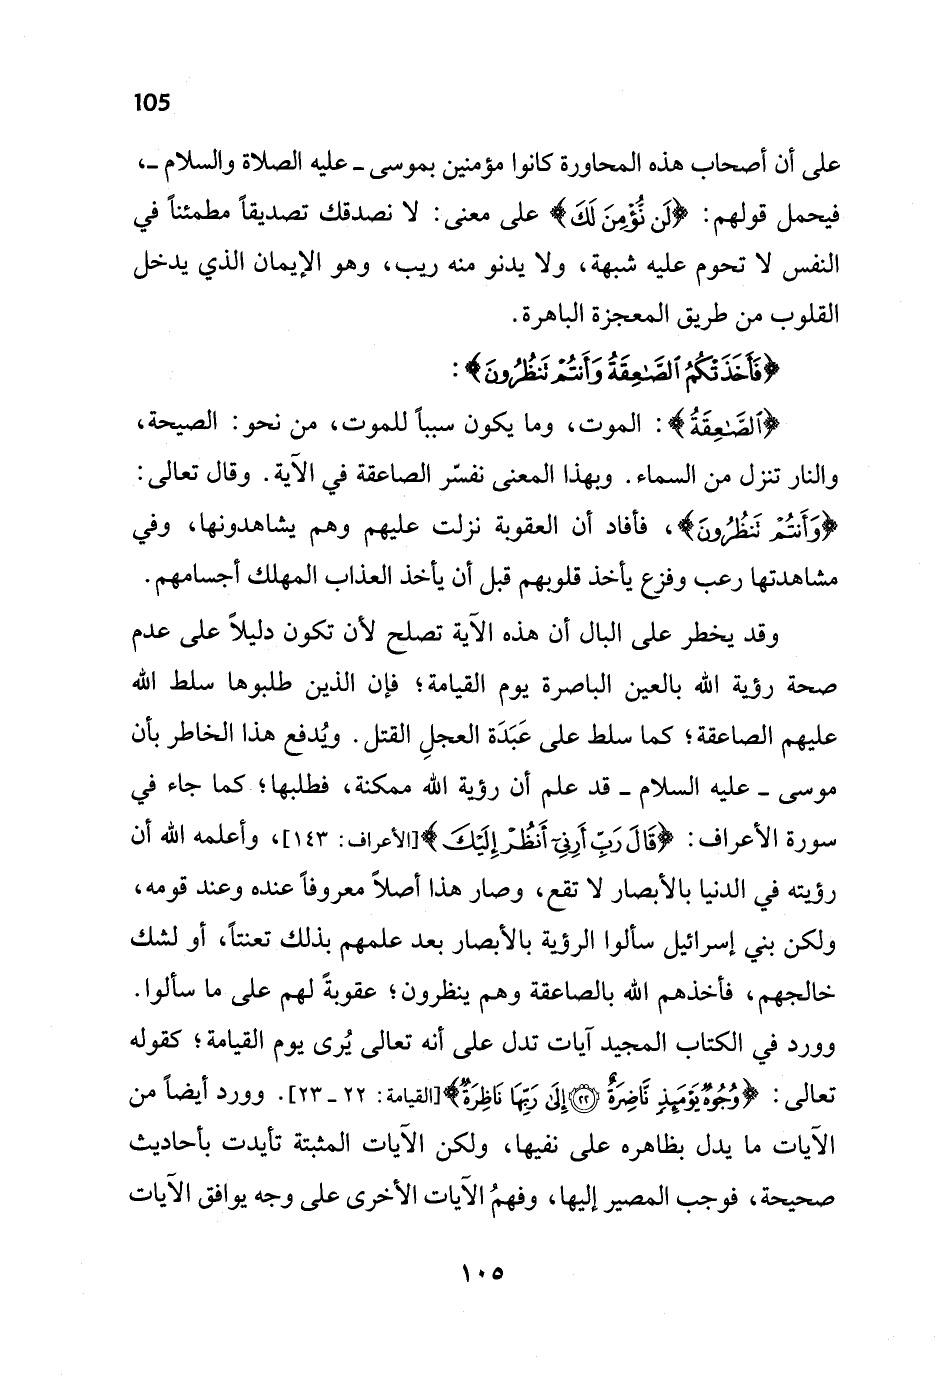 105
على أن أصحاب هذه المحاورة كانوا مؤمنين بموسى ـ عليه الصلاة والسلام ـ،
فيحمل قولهم: ﴿لَن نُّؤْمِنَ لَكَ﴾ على معنى: لا نصدقك تصديقاً مطمئناً في
النفس لا تحوم عليه شبهة، ولا يدنو منه ريب، وهو الإيمان الذي يدخل
القلوب من طريق المعجزة الباهرة.
﴿فَأَخَذَتْكُمُ ٱلصَّـٰعِقَةُ وَأَنتُمْ نَنظُرُونَ﴾:
﴿ٱلصَّـٰعِقَةُ﴾: الموت، وما يكون سبباً للموت، من نحو: الصيحة،
والنار تنزل من السماء. وبهذا المعنى نفسّر الصاعقة في الآية. وقال تعالى:
﴿وَأَنتُمْ نَنظُرُونَ﴾، فأفاد أن العقوبة نزلت عليهم وهم يشاهدونها، وفي
مشاهدتها رعب وفزع يأخذ قلوبهم قبل أن يأخذ العذاب المهلك أجسامهم.
وقد يخطر على البال أن هذه الآية تصلح لأن تكون دليلاً على عدم
صحة رؤية الله بالعين الباصرة يوم القيامة؛ فإن الذين طلبوها سلط الله
عليهم الصاعقة؛ كما سلط على عَبَدَة العجلِ القتل. ويُدفع هذا الخاطر بأن
موسى ـ عليه السلام ـ قد علم أن رؤية الله ممكنة، فطلبها؛ كما جاء في
سورة الأعراف: ﴿قَالَ رَبِّ أَرِنِىٓ أَنظُرْ إِلَيْكَ﴾[الأعراف: ١٤٣]، وأعلمه الله أن
رؤيته في الدنيا بالأبصار لا تقع، وصار هذا أصلاً معروفاً عنده وعند قومه،
ولكن بني إسرائيل سألوا الرؤية بالأبصار بعد علمهم بذلك تعنتاً، أو لشك
خالجهم، فأخذهم الله بالصاعقة وهم ينظرون؛ عقوبةً لهم على ما سألوا.
وورد في الكتاب المجيد آيات تدل على أنه تعالى يُرى يوم القيامة؛ كقوله
تعالى: ﴿وُجُوهٌ يَوْمَئِذٍ نَّاضِرَةٌ ٢٢ إِلَىٰ رَبِّهَا نَاظِرَةٌ﴾[القيامة: ٢٢ ـ ٢٣]. وورد أيضاً من
الآيات ما يدل بظاهره على نفيها، ولكن الآيات المثبتة تأيدت بأحاديث
صحيحة، فوجب المصير إليها، وفهمُ الآيات الأخرى على وجه يوافق الآيات
١٠٥